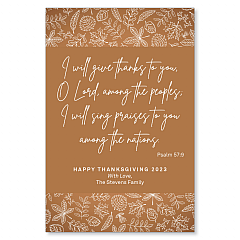 I will give thanks to you,
O Lord, among the peoples;
I will sing praises to you
among the nations
Psalm 57:9
HAPPY THANKSGIVING 2023
With Love,
The Stevens Family